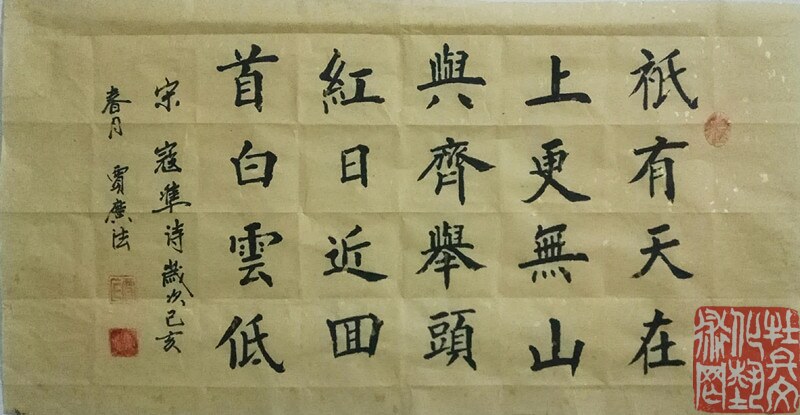 祇有天在
上更無山
與齊舉頭
紅日近回
首白雲低
宋 寇準诗歲次己亥
春月 賈廣法